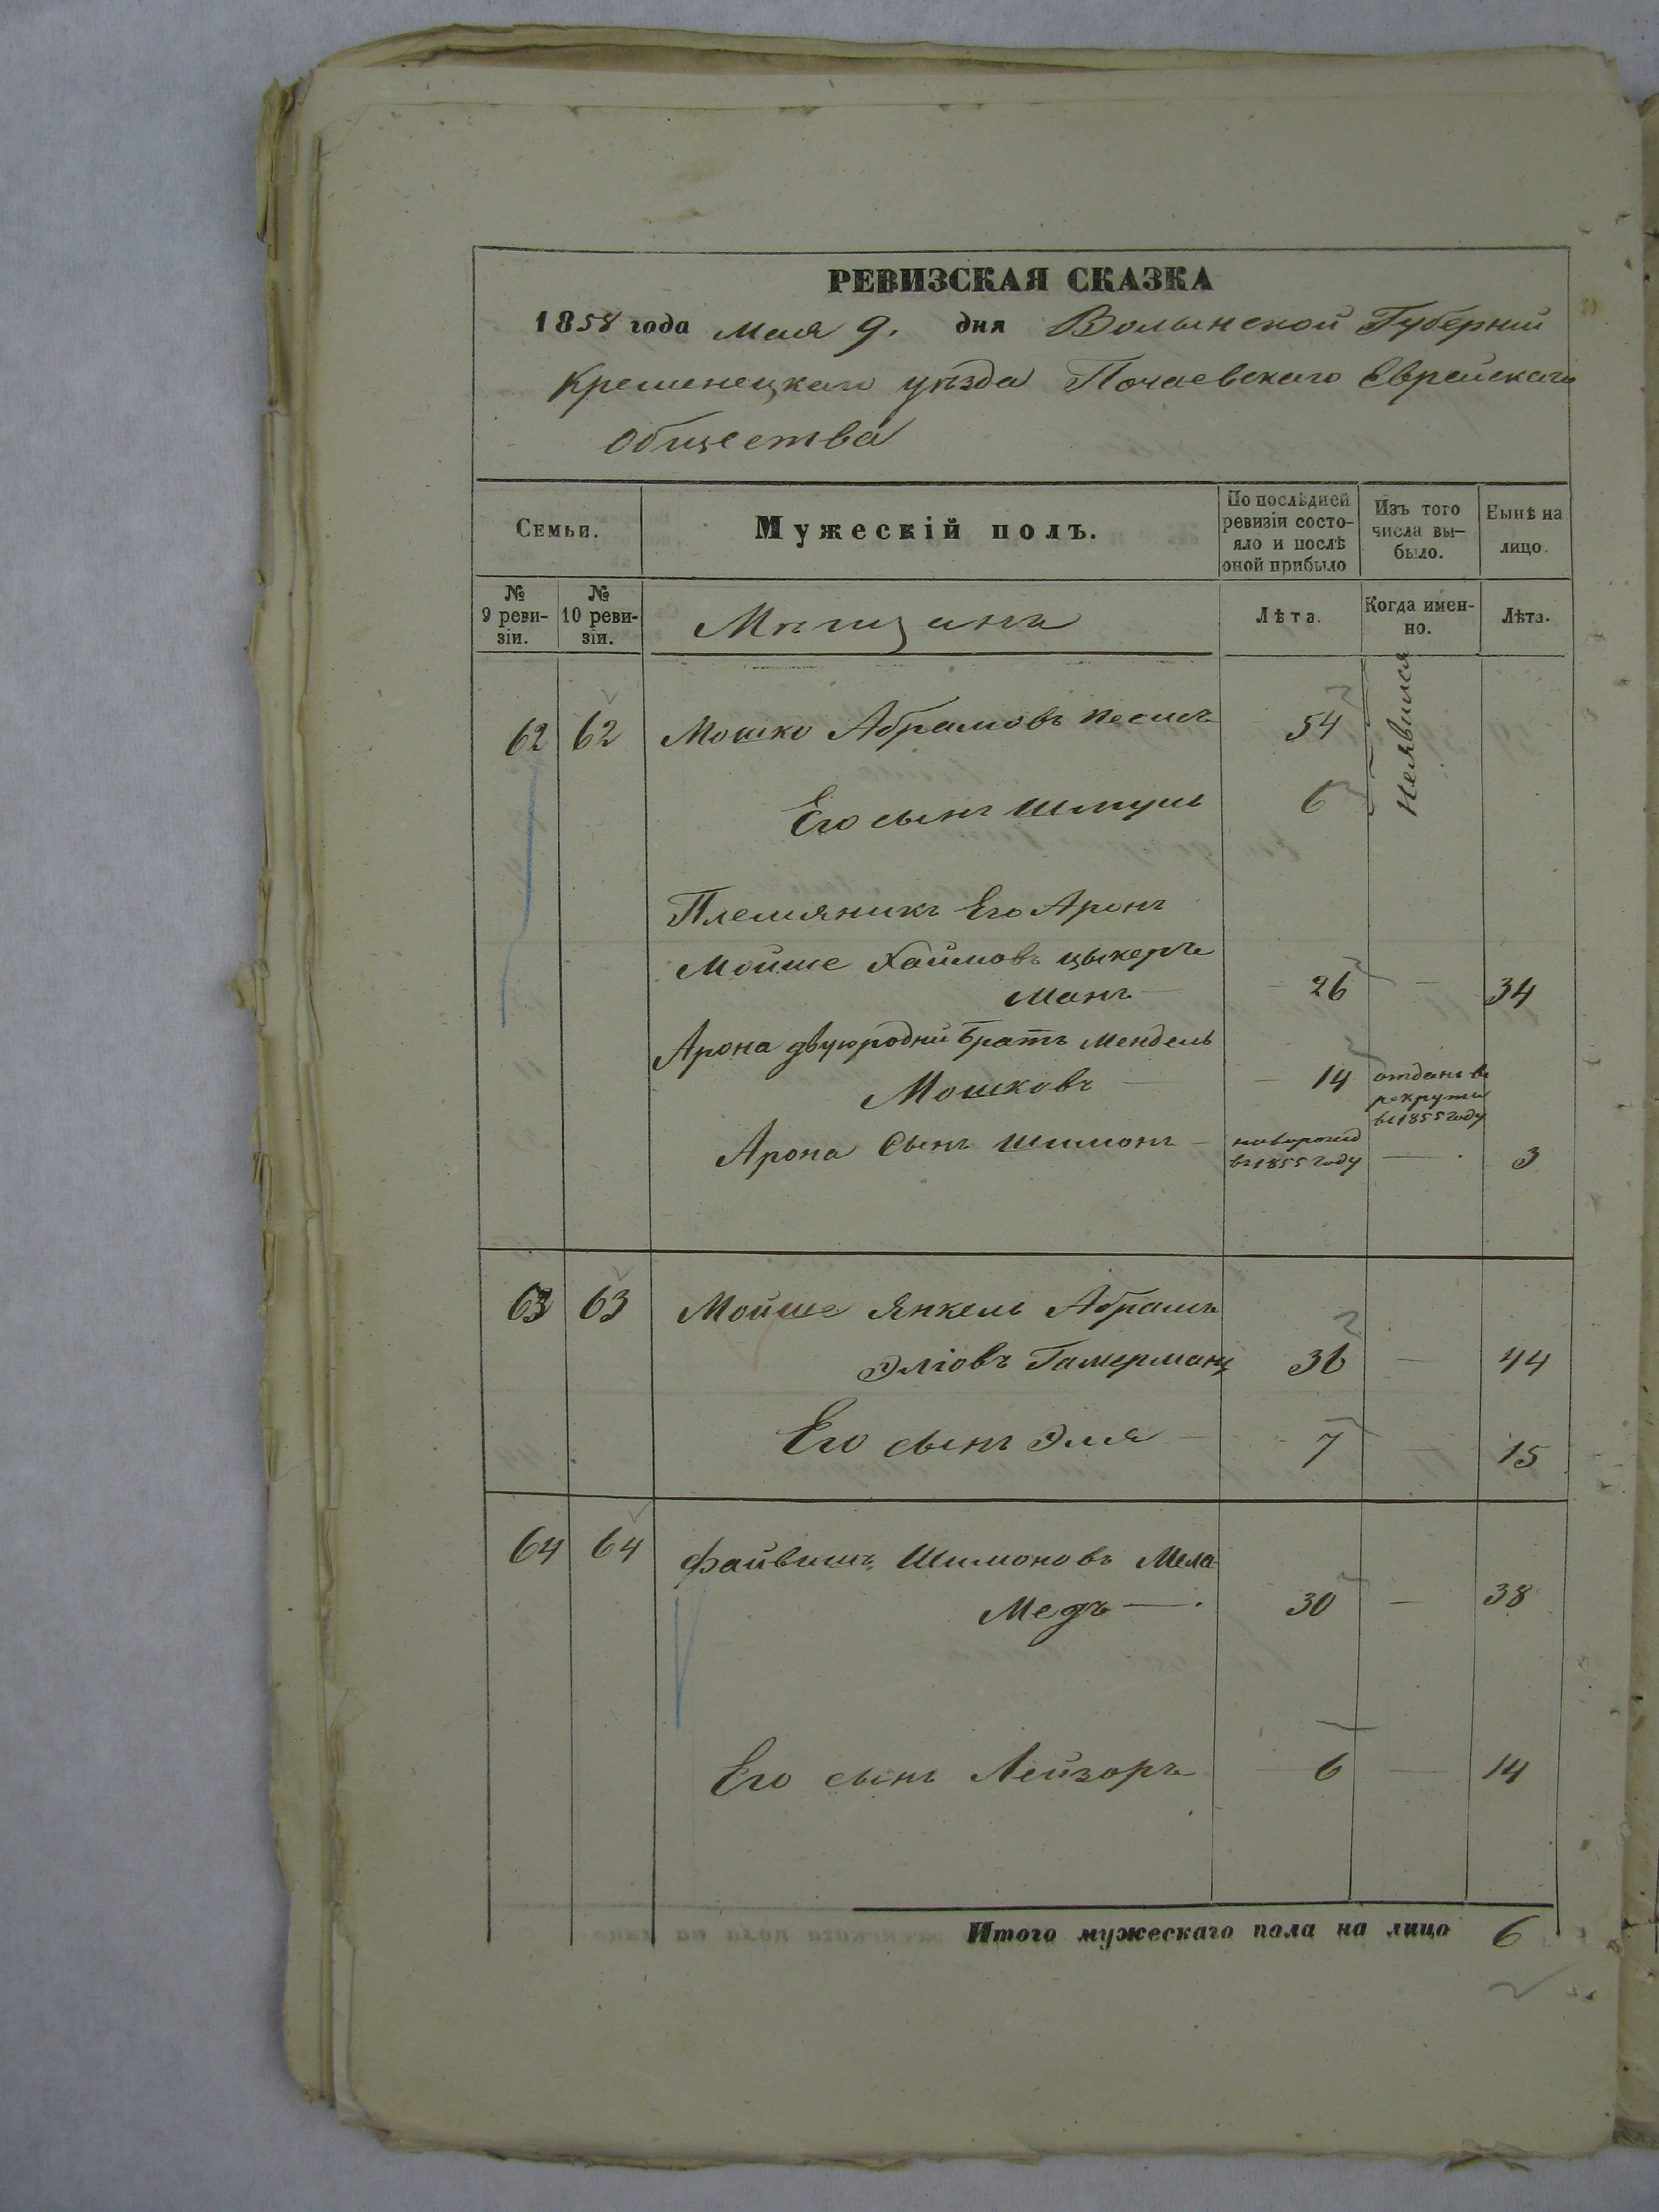 РЕВИЗСКАЯ СКАЗКА
1858 года мая 9. дня Волынской Губернии
Кременецкаго уѣзда Почаевскаго Еврейскаго
Общества
Семьи.
Мужескій полъ.
По послѣдней ревизіи состо-
яло и послѣ
оной прибыло
Изъ того
числа вы-
было.
Нынѣ на
лицо.
№
9 реви-
зіи.
№
10 реви-
зіи.
Мѣщанъ
Лѣта.
Когда имен-
но.
Лѣта.
62 62 Мошко Абрамовъ 54
Неявился
Его сынъ Шмуль 6
Племяникъ Его Аронъ
Мойше Хаимовъ Цыкеръ
манъ — 26 — 34
Арона двуюродни Братъ Мендель
Мошковъ — 14 отданъ въ
рекруты
въ 1855 году
Арона Сынъ Шимонъ — новорожд
въ 1855 году — 3
63 63 Мойше Янкель Абрамъ
Эліовъ Гамерманъ 36 — 44
Его сынъ Эля — 7 — 15
64 64 Файвишъ Шимоновъ Мела-
медъ — 30 — 38
Его сынъ Лейзоръ 6 — 14
Итого мужескаго пола на лицо 6